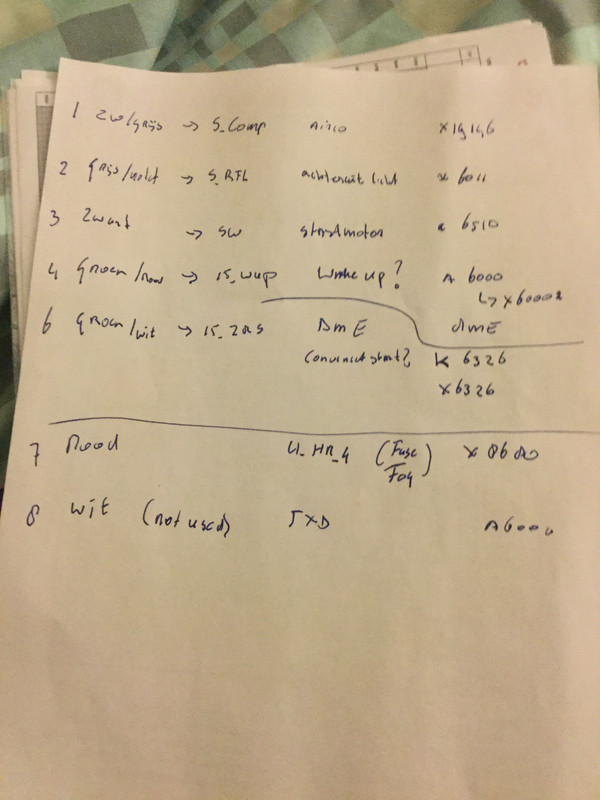 1 zw/grijs → S_Comp Airco X19146
2 grijs/violet → S_RFL achteruit licht X 6011
3 Zwart → SW startmotor 6510
4 groen/rood → 15_wup Wake up? A 6000
↳ X60002
6 groen/wit → 15_ZRS DME DME
Convenient start? K 6326
X6326
7 Rood U_HR_4 (Fuse X 8680
F04)
8 wit (not used) TXD A6000